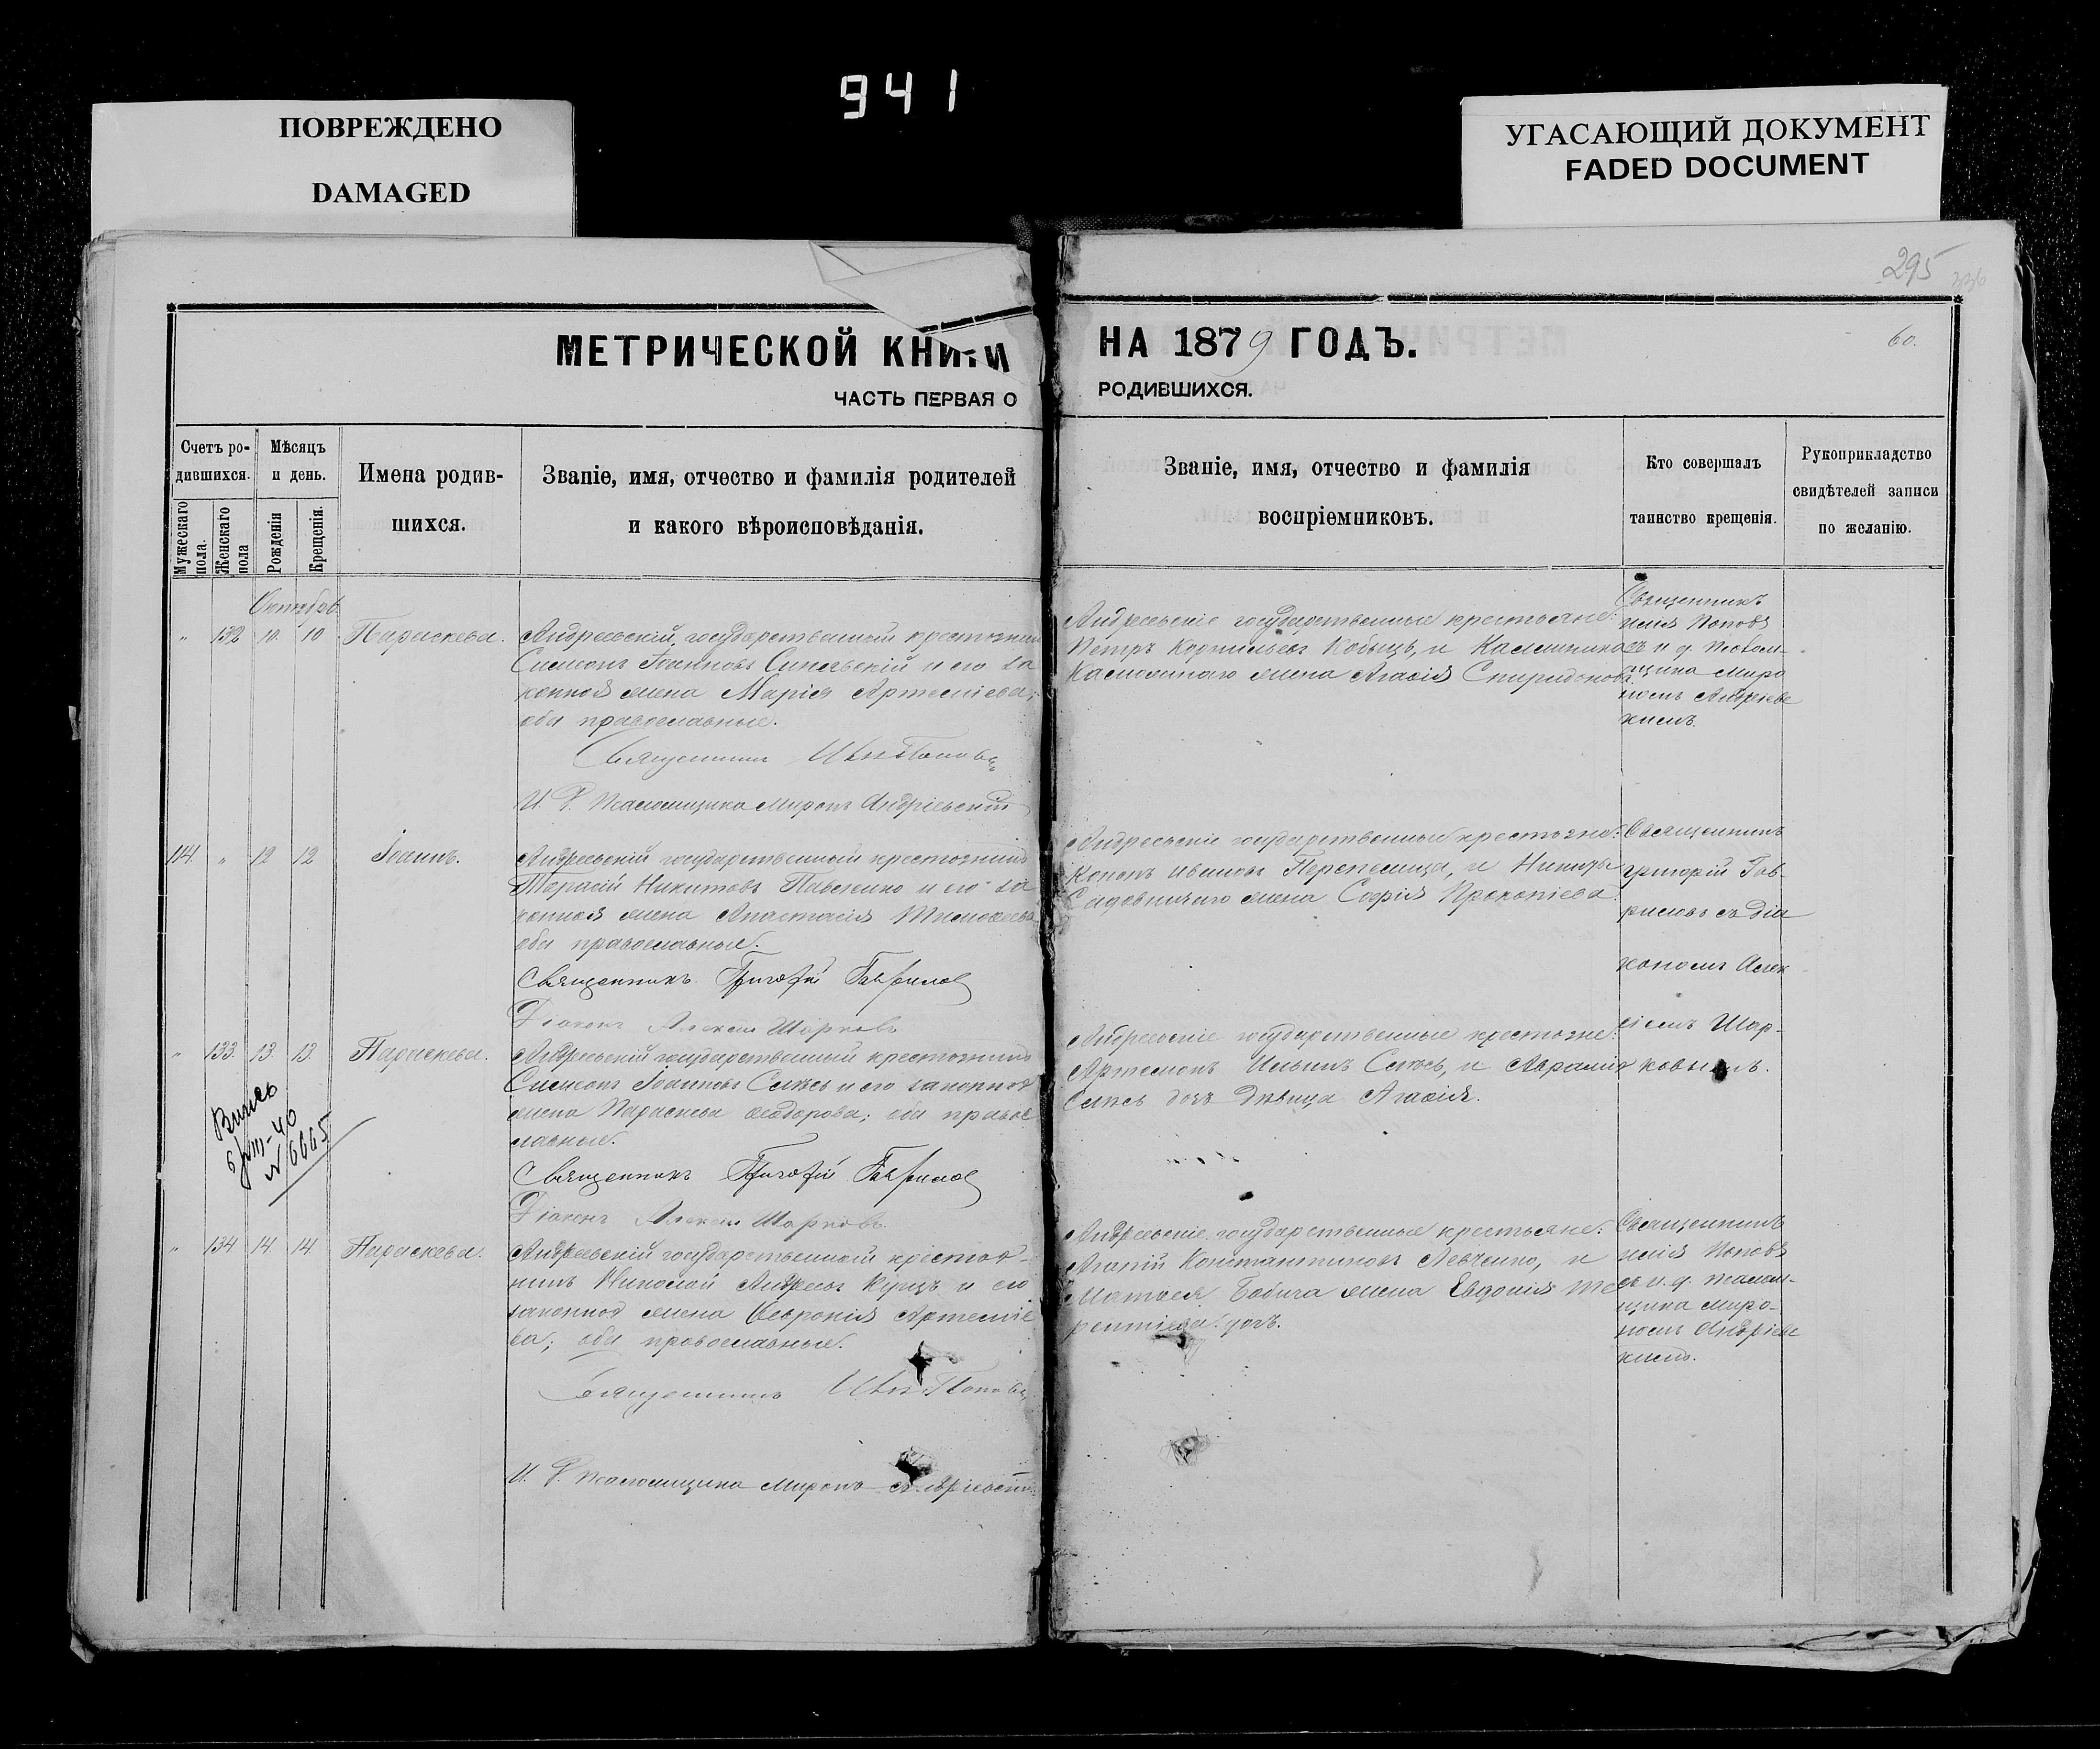 941
ПОВРЕЖДЕНО
DAMAGED
УГАСАЮЩИЙ ДОКУМЕНТ
FADED DOCUMENT
295
60.
МЕТРИЧЕСКОЙ КНИГИ
НА 1879 ГОДЪ.
ЧАСТЬ ПЕРВАЯ О
РОДИВШИХСЯ.
Счетъ ро-
дившихся.
Мужескаго
пола.
Женскаго
пола
Мѣсяцъ
и день.
Рожденія
Крещенія.
Имена родив-
шихся.
Званіе, имя, отчество и фамилія родителей
и какого вѣроисповѣданія.
Званіе, имя, отчество и фамилія
воспріемниковъ.
Кто совершалъ
таинство крещенія.
Рукоприкладство
свидѣтелей записи
по желанію.
Октябрь
" 132 10. 10 Параскева.
Андреевскій государственный крестьянинъ
Симеонъ Іоанновъ Синявскій и его за
конная жена Марія Артеміева;
оба православные.
Священникъ Илія Поповъ
И. д. Псаломщика Миронъ Андріевскій
Андреевскіе государственные крестьяне:
Петръ Корнильевъ Кобыцъ, и Калинника
жена Агафія Спиридонова.
Священникъ
Илія Поповъ
съ и. д. псалом-
щика Миро
номъ Андріевс
кимъ.
114. " 12 12 Іоаннъ.
Андреевскій государственный крестьянинъ
Тарасій Никитовъ Павленко и его за
конная жена Анастасія Тимофеева
оба православные.
Священникъ Григорій Гавриловъ
Діаконъ Алексій Шарковъ
Андреевскіе государственные крестьяне:
Кононъ Ивановъ Перепелица, и Никиты
Садовничаго жена Софія Прокопіева.
Священникъ
Григорій Гав-
риловъ съ діа
кономъ Алек
сіемъ Шар-
ковымъ.
" 133. 13. 13. Параскева.
Андреевскій государственный крестьянинъ
Симеонъ Іоанновъ и его законная
жена Параскева Феодорова; оба правос
лавные.
Священникъ Григорій Гавриловъ
Діаконъ Алексій Шарковъ
Андреевскіе государственные крестьяне:
Артемонъ Ильинъ и Авраамія
дочь дѣвица Агафія.
N 6665
" 134 14. 14 Параскева.
Андреевскій государственный крестья-
нинъ Николай Андреевъ Куцъ и его
законная жена Февронія Артеміе
ва; оба православные.
Священникъ Илія Поповъ
И. д. Псаломщика Миронъ Андріевскій
Андреевскіе государственные крестьяне:
Агапій Константиновъ Левченко, и
Матвея Бабича жена Евдокія Те
рентіева дочь.
Священникъ
Илія Поповъ
съ и. д. псалом-
щика Миро-
номъ Андріевс
кимъ.